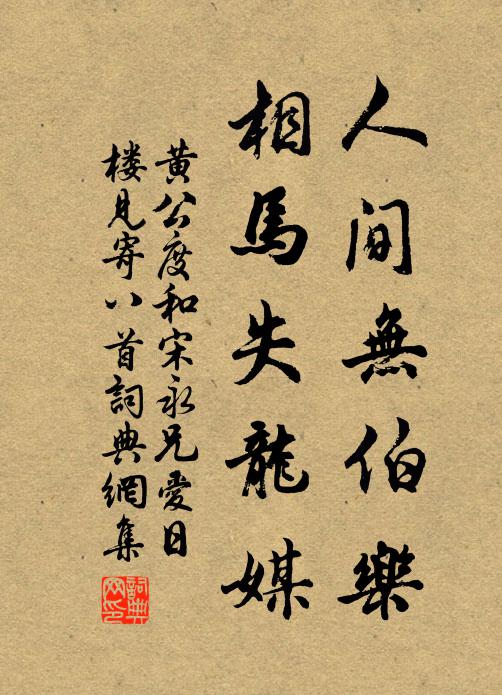 人間無伯樂
相馬失龍媒
黄公度和宋永兄愛日
楼見寄八首詞典網集
詞典网印